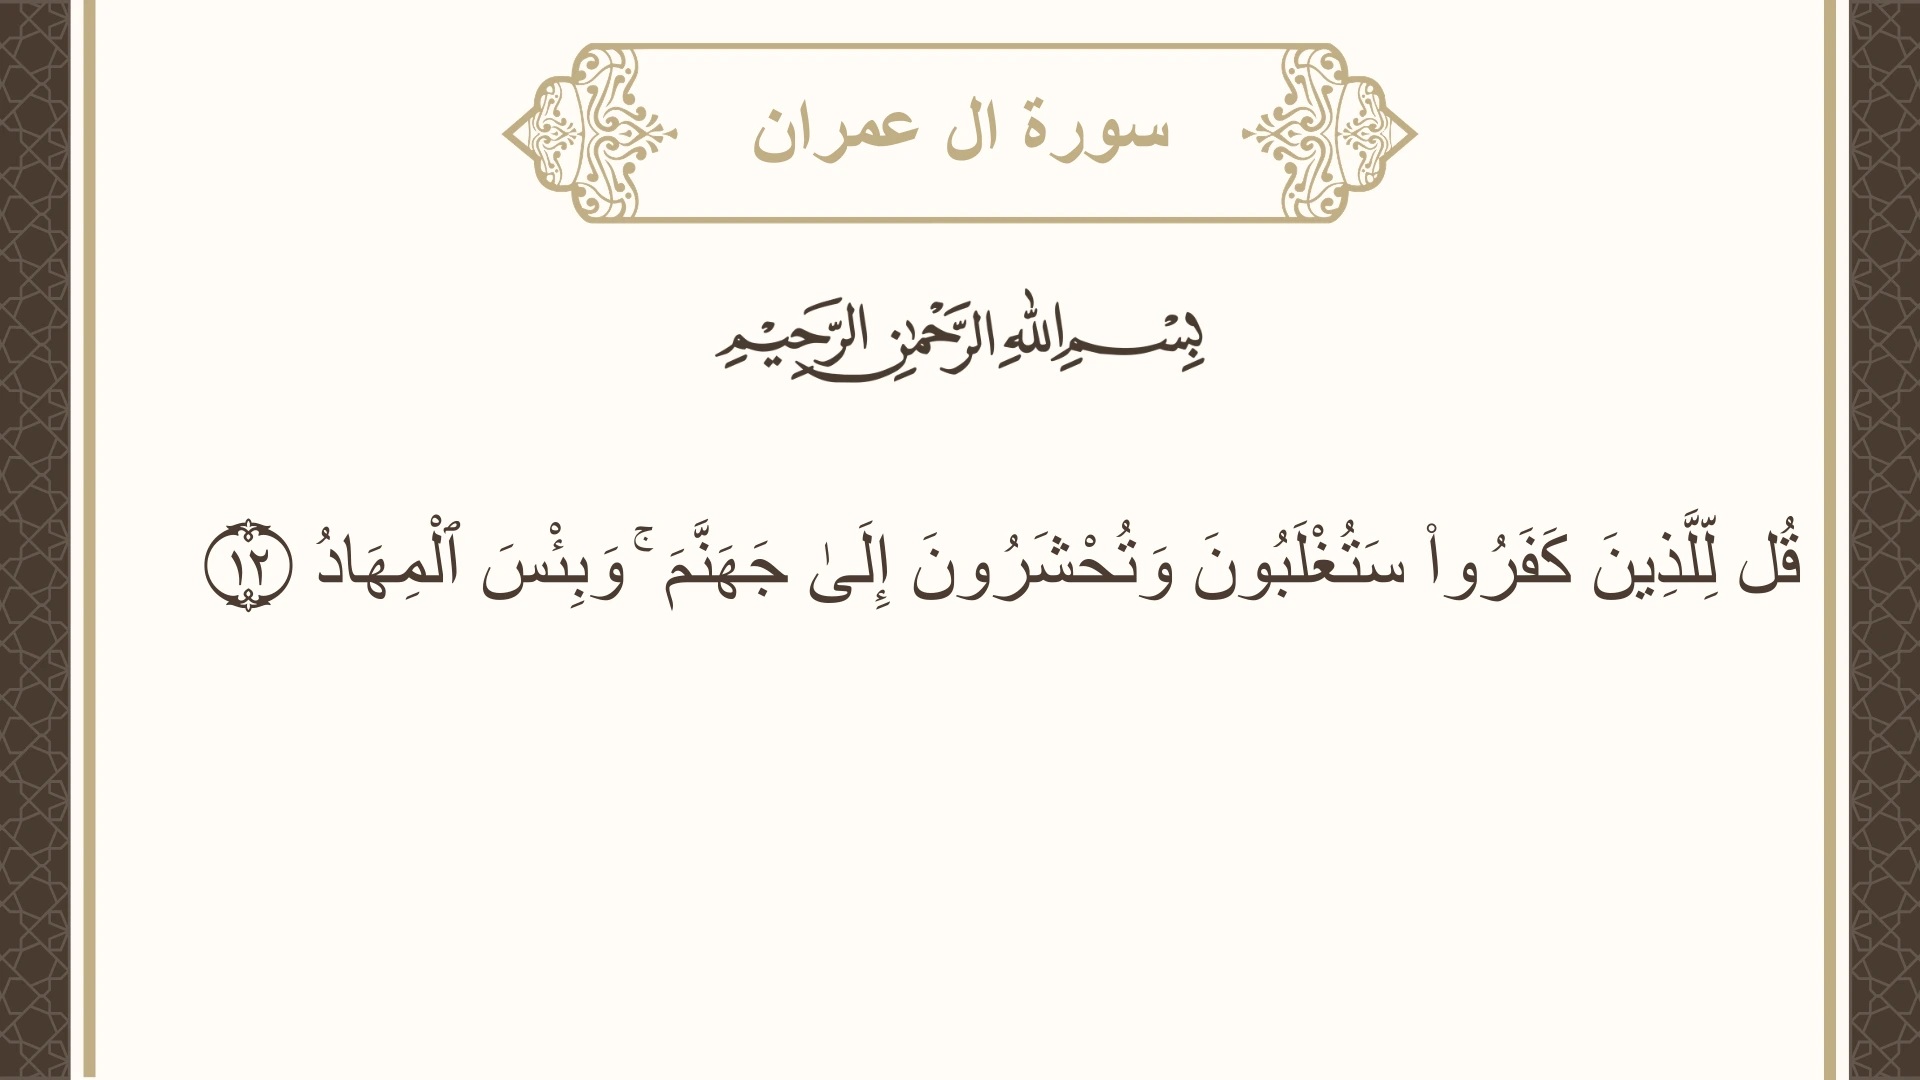 سورة ال عمران
بِسْمِ اللهِ الرَّحْمٰنِ الرَّحِيْمِ
قُل لِّلَّذِينَ كَفَرُوا۟ سَتُغْلَبُونَ وَتُحْشَرُونَ إِلَىٰ جَهَنَّمَ ۚ وَبِئْسَ ٱلْمِهَادُ ١٢